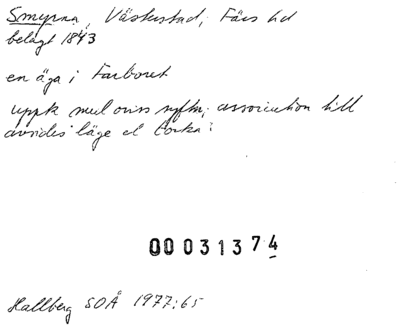 Smyrna, Västerstad, Färs hd
belägt 1843
en äga i Farboret
uppk med oviss syftn; association till
avsides läge el torka?
00031374
Hallberg SOÅ 1977:65